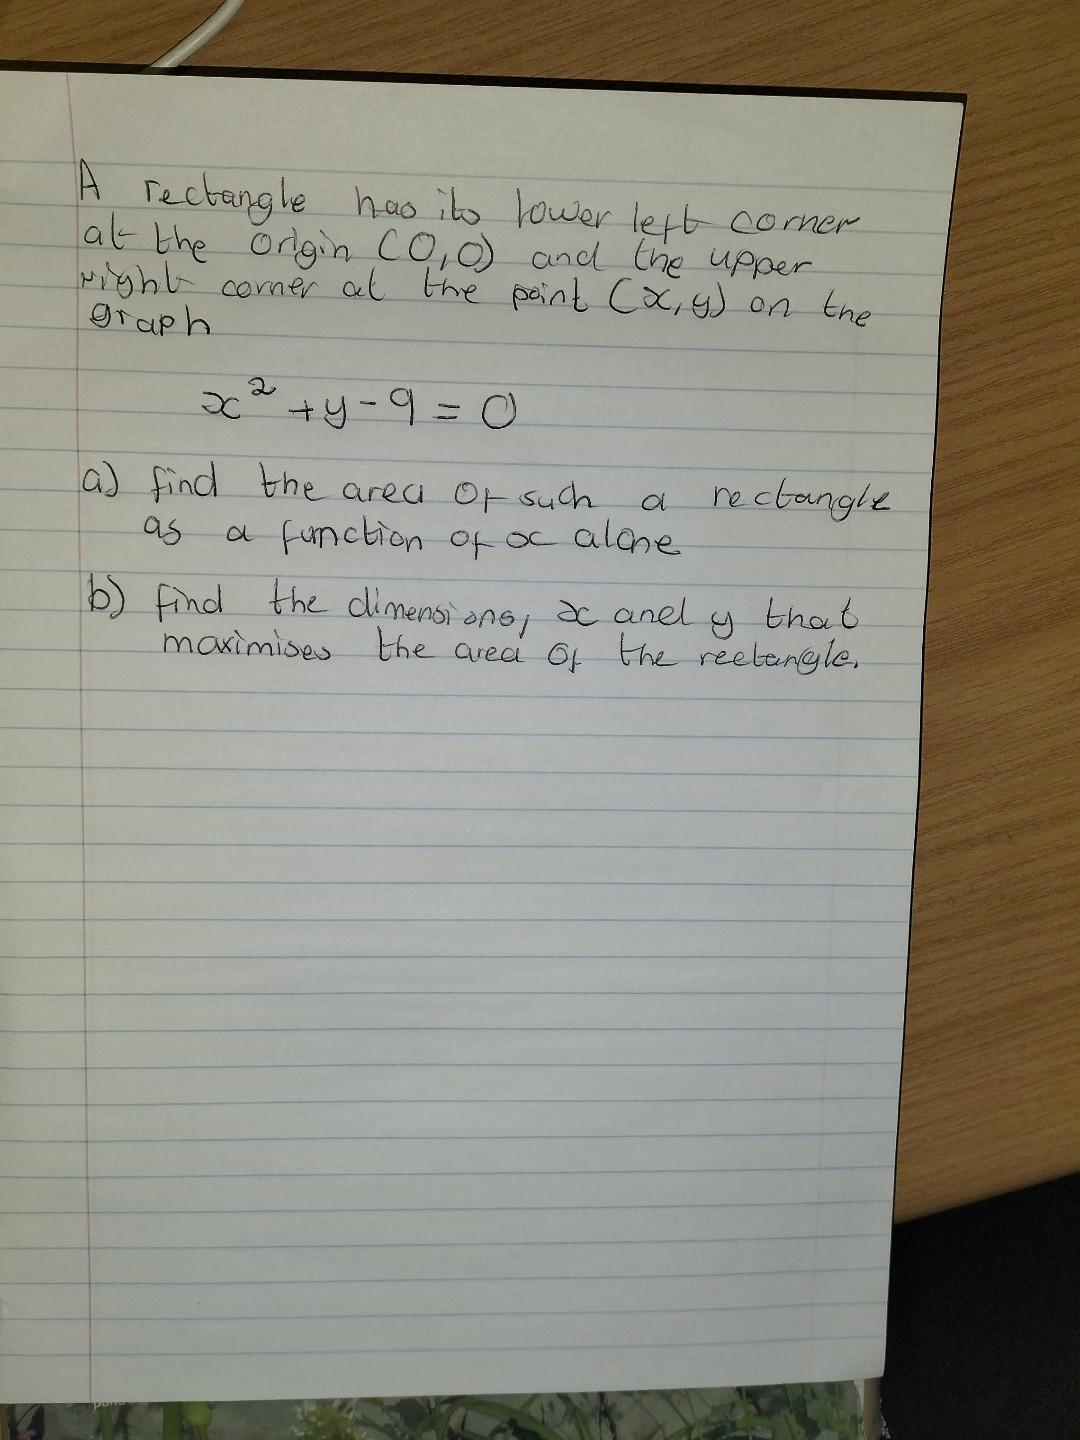 A rectangle has its lower left corner
at the origin (0,0) and the upper
right corner at the point (x,y) on the
graph
x² + y - 9 = 0
a) find the area of such a rectangle
as a function of x alone
b) find the dimensions, x and y that
maximises the area of the rectangle.